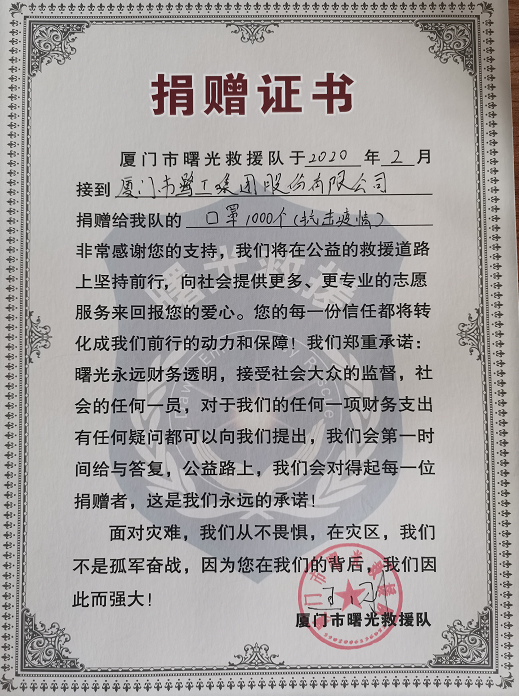 捐赠证书
厦门市曙光救援队于2020年2月
接到厦门市鹭工集团股份有限公司
捐赠给我队的口罩1000个(抗击疫情)
非常感谢您的支持，我们将在公益的救援道路
上坚持前行，向社会提供更多、更专业的志愿
服务来回报您的爱心。您的每一份信任都将转
化成我们前行的动力和保障！我们郑重承诺：
曙光永远财务透明，接受社会大众的监督，社
会的任何一员，对于我们的任何一项财务支出
有任何疑问都可以向我们提出，我们会第一时
间给与答复，公益路上，我们会对得起每一位
捐赠者，这是我们永远的承诺！
面对灾难，我们从不畏惧，在灾区，我们
不是孤军奋战，因为您在我们的背后，我们因
此而强大！
厦门市曙光救援队
曙光救援